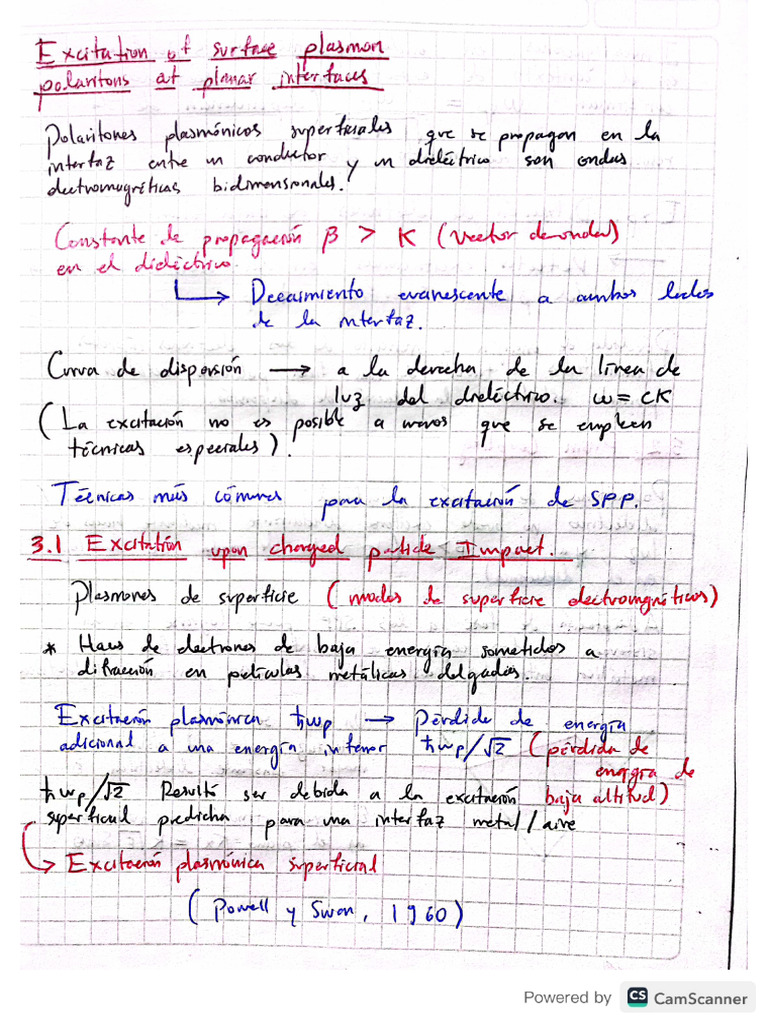 Excitation of surface plasmon
polaritons at planar interfaces
Polaritones plasmónicos superficiales que se propagan en la
interfaz entre un conductor y un dieléctrico son ondas
electromagnéticas bidimensionales!
Constante de propagación β > K (vector de onda)
en el dieléctrico.
Decaimiento evanescente a ambos lados
de la interfaz.
Curva de dispersión → a la derecha de la línea de
luz del dieléctrico. ω = ck
(La excitación no es posible a menos que se empleen
técnicas especiales).
Técnicas más cómunes para la excitación de SPP.
3.1 Excitation upon charged particle Impact.
Plasmones de superficie (modos de superficie electromagnéticos)
* Haces de electrones de baja energía sometidos a
difracción en películas metálicas delgadas.
Excitación plasmónica ħωp → Pérdida de energía
adicional a una energía inferior ħωp/√2 (pérdida de
energía de
ħωp/√2 Resultó ser debida a la excitación baja altitud)
superficial predicha para una interfaz metal/aire
↳ Excitación plasmónica superficial
(Powell y Swan, 1960)
Powered by CS CamScanner